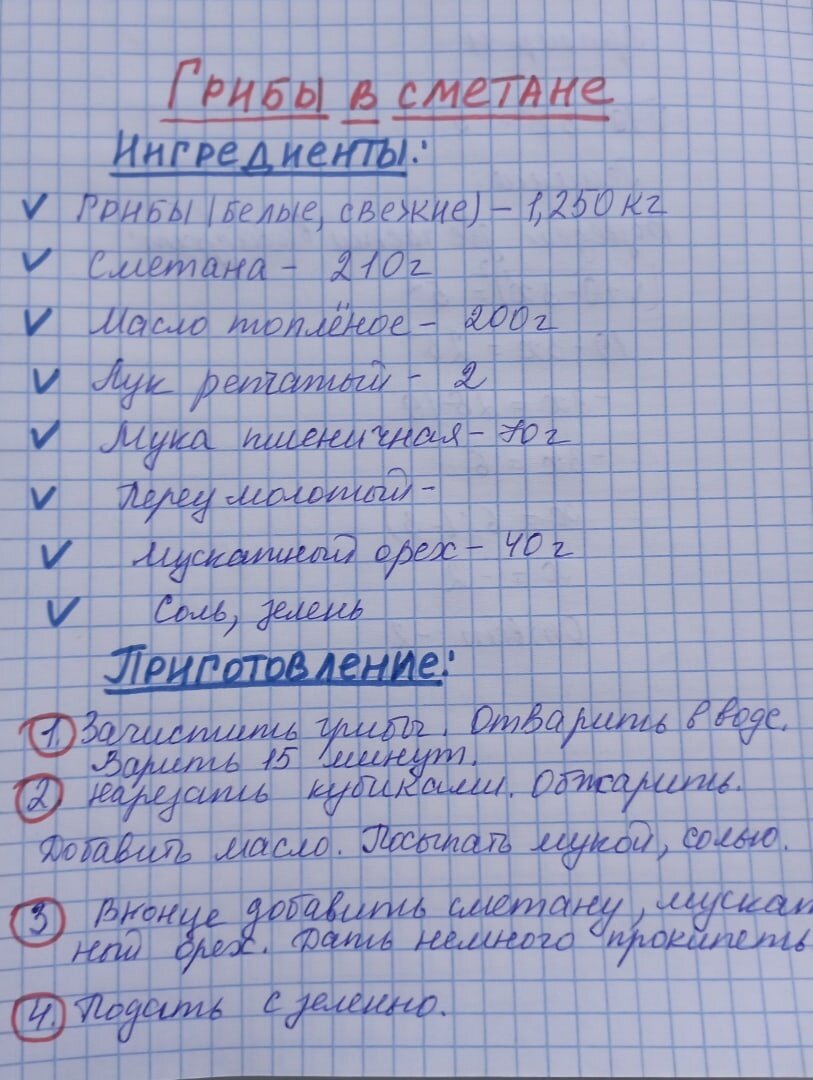 Грибы в сметане
Ингредиенты:
Грибы (белые, свежие) – 1,250 кг
Сметана – 210 г
Масло топлёное – 200 г
Лук репчатый – 2
Мука пшеничная – 70 г
Перец молотый –
Мускатный орех – 40 г
Соль, зелень
Приготовление:
1. Зачистить грибы. Отварить в воде.
Варить 15 минут.
2 Нарезать кубиками. Обжарить.
Добавить масло. Посыпать мукой, солью.
3 Вконце добавить сметану, мускат
ный орех. Дать немного прокипеть
4. Подать с зеленью.